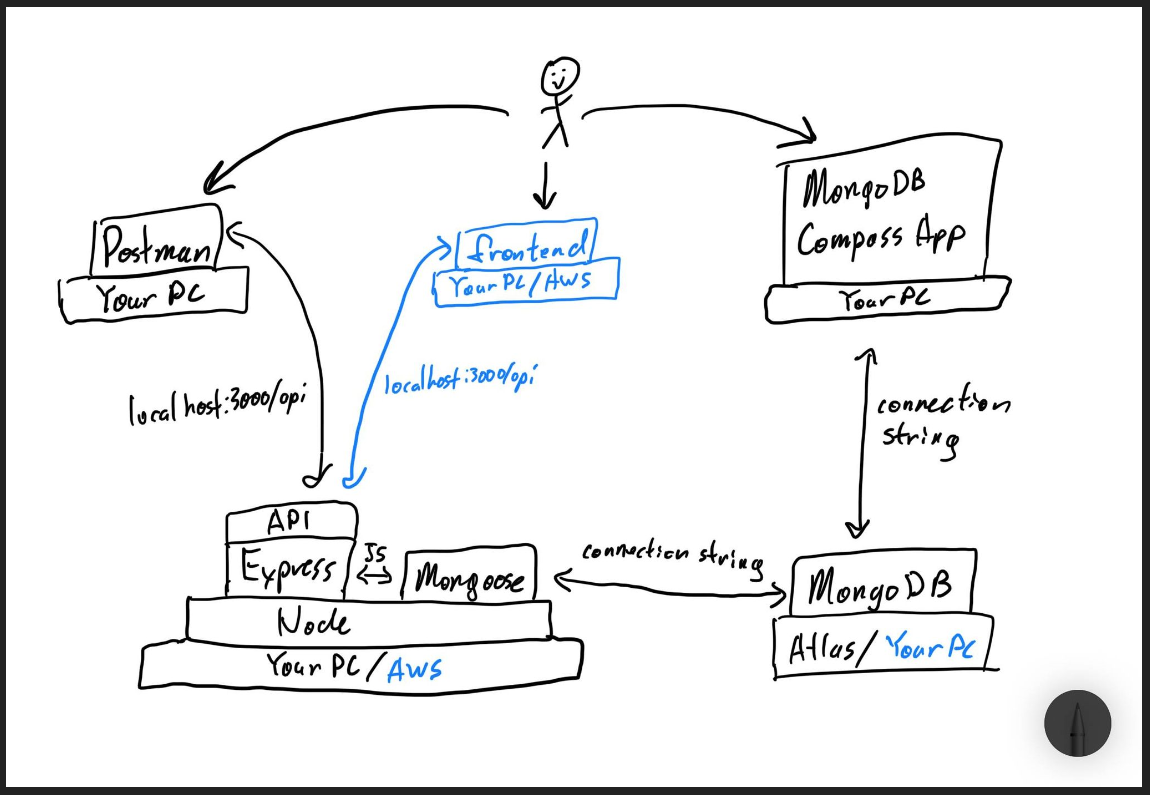 Postman
Your PC
frontend
Your PC/AWS
MongoDB
Compass App
Your PC
localhost:3000/api
localhost:3000/api
connection
string
API
Express
JS
Mongoose
Node
Your PC/AWS
connection string
MongoDB
Atlas/Your PC